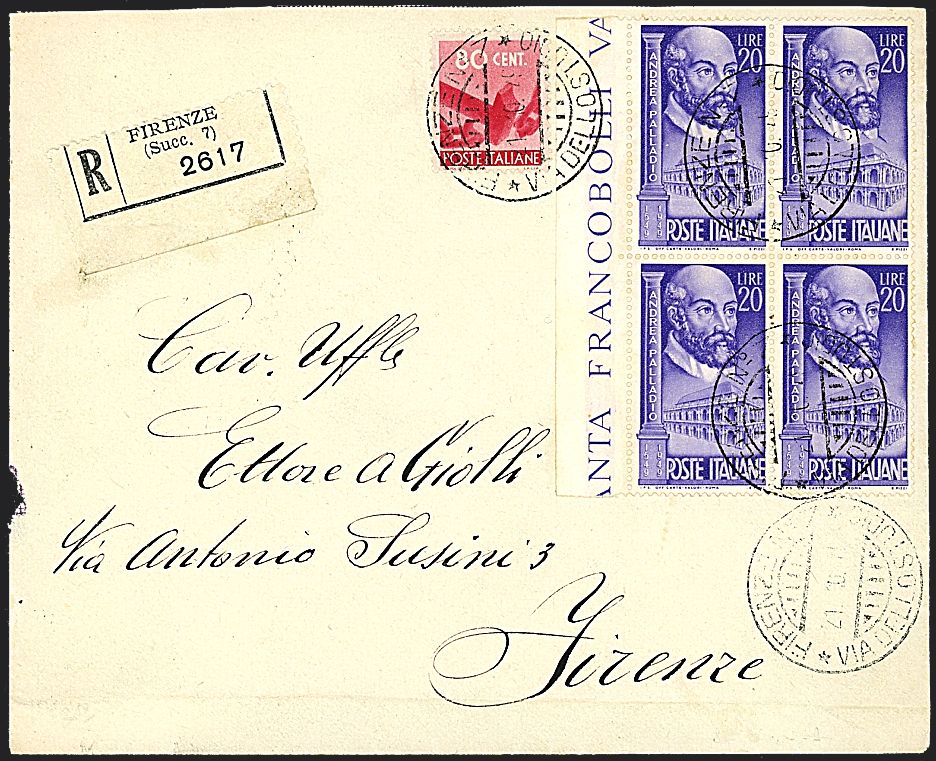 R
FIRENZE
(Succ. 7)
2617
80 CENT.
POSTE ITALIANE
ANTA FRANCOBOLLI VA
LIRE
20
ANDREA PALLADIO
1549
1949
POSTE ITALIANE
LIRE
20
ANDREA PALLADIO
1549
1949
POSTE ITALIANE
LIRE
20
ANDREA PALLADIO
1549
1949
POSTE ITALIANE
LIRE
20
ANDREA PALLADIO
1549
1949
POSTE ITALIANE
Cav. Uffle
Ettore A Giolli
Via Antonio Susini 3
Firenze
FIRENZE
VIA DELLO STUDIO